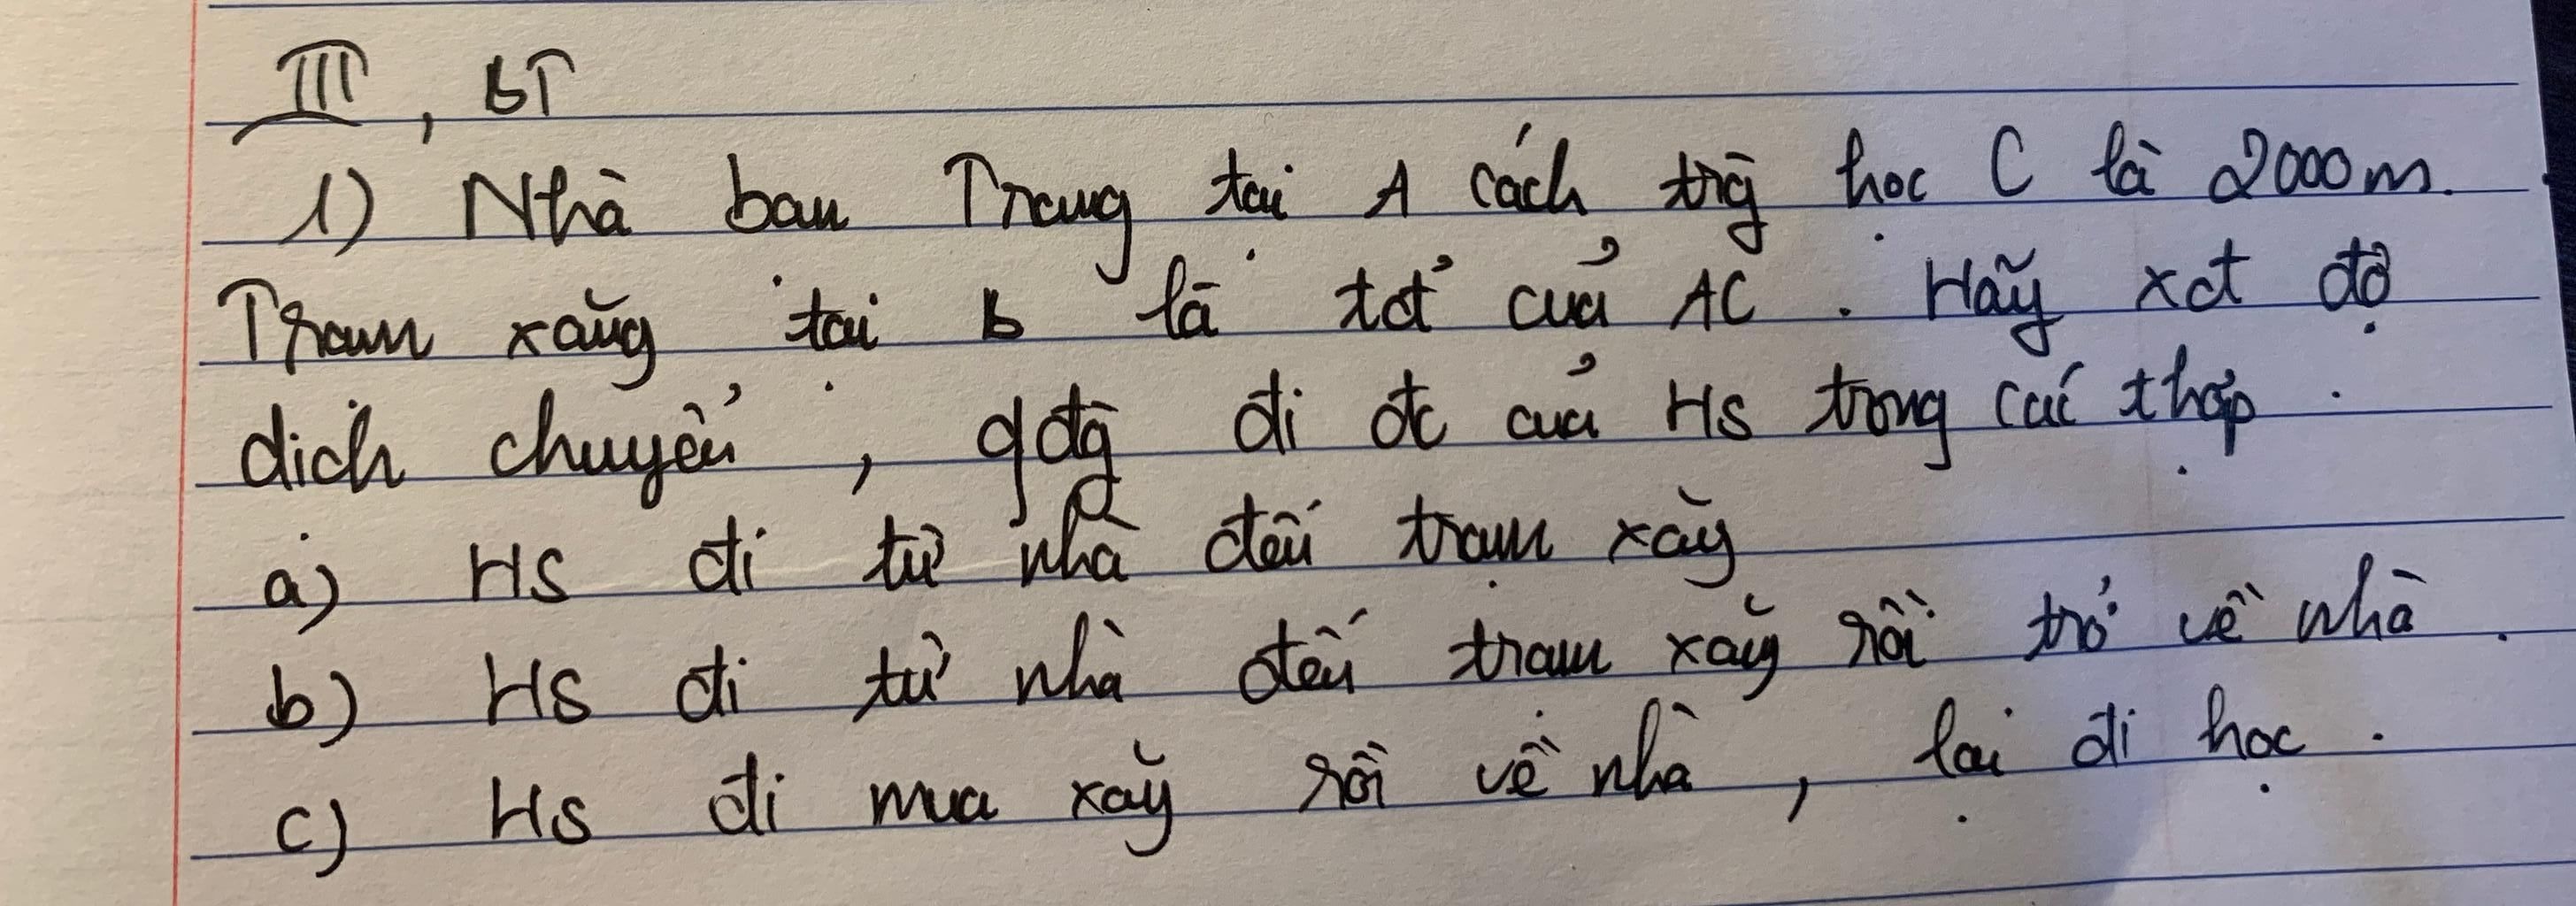 III, BT
1) Nhà bạn Trang tại A cách trg̀ học C là 2000m.
Trạm xăng tại B là tđ' của AC. Hãy xđ độ
dịch chuyển, qđg đi đc của HS trong các thợp.
a) HS đi từ nhà đến trạm xăg
b) HS đi từ nhà đến trạm xăg rồi trở về nhà.
c) HS đi mua xăg rồi về nhà, lại đi học.